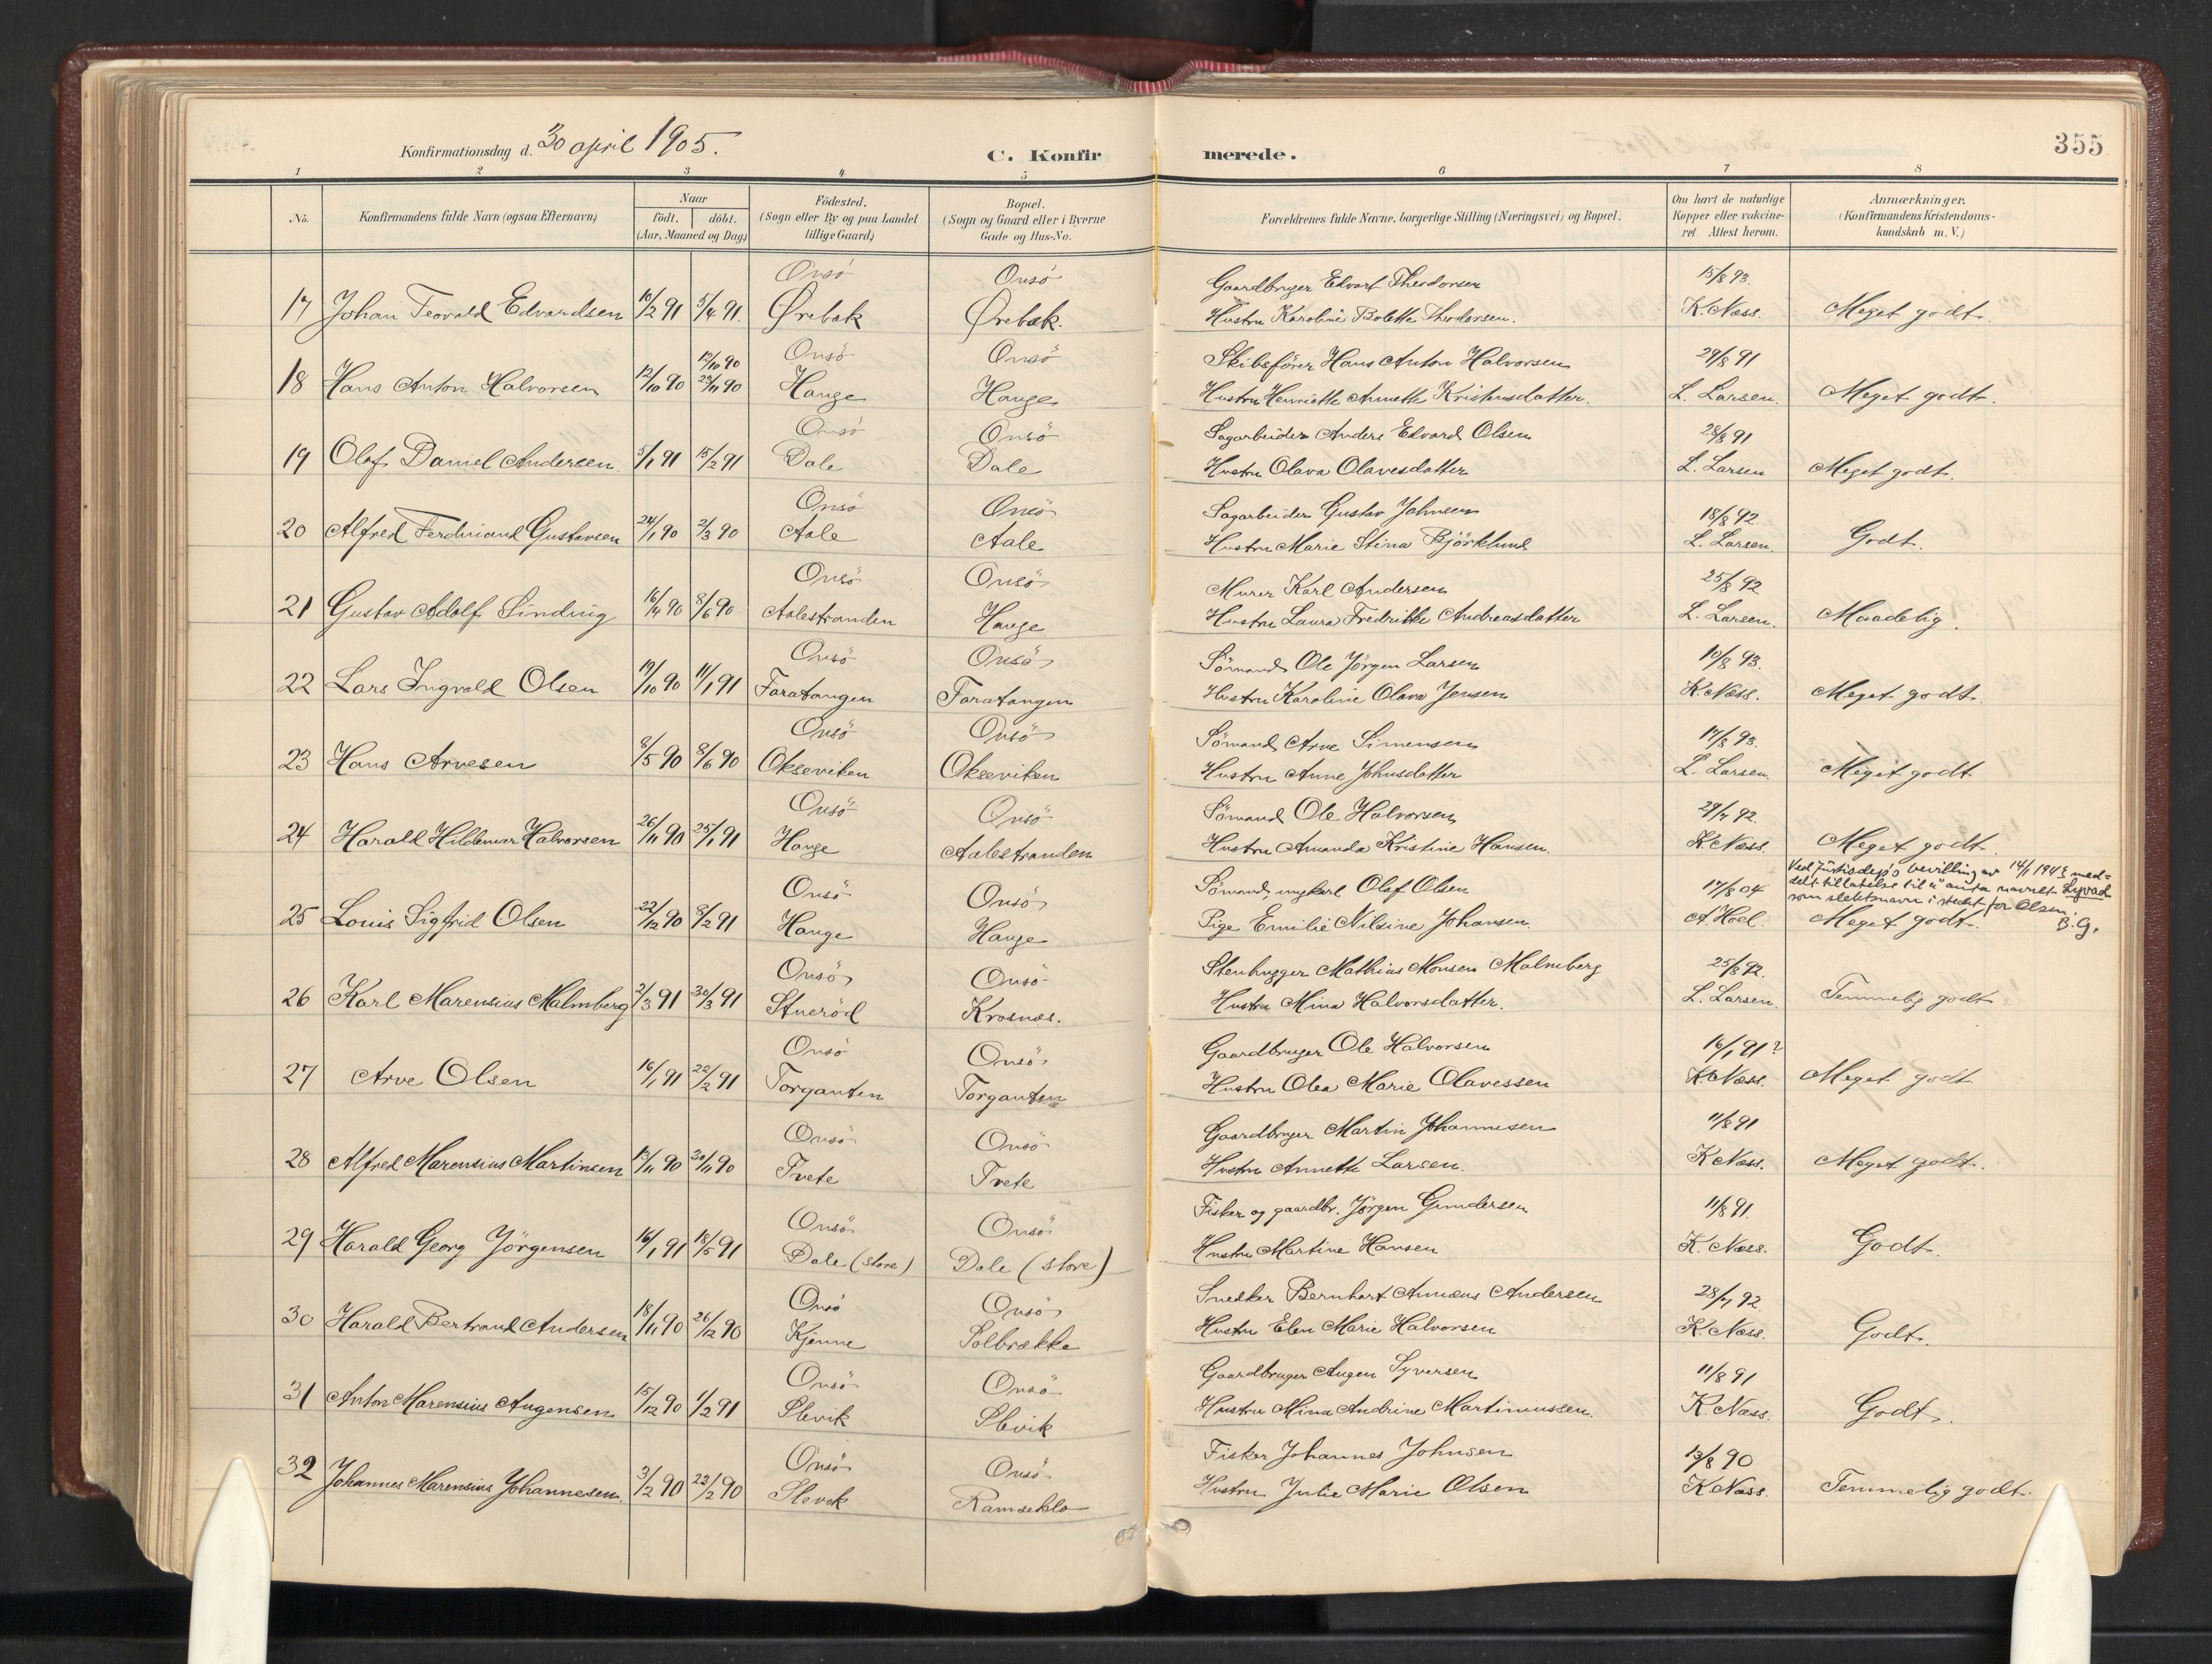 Konfirmationsdag d. 30 april 1905.
C. Konfirmerede.
355
1 2 3 4 5 6 7 8
No. Konfirmandens fulde Navn (ogsaa Efternavn) Naar födt. döbt. (Aar, Maaned og Dag) Födested. (Sogn eller By og paa Landet tillige Gaard) Bopæl. (Sogn og Gaard eller i Byerne Gade og Hus-No. Forældrenes fulde Navne, borgerlige Stilling (Næringsvei) og Bopæl. Om havt de naturlige Kopper eller vakcineret Attest herom. Anmærkninger, (Konfirmandens Kristendomskundskab m. V.)
Onsö Onsö Gaardbruger Edvart Theodorsen 15/8 93.
17 Johan Teovald Edvardsen 10/2 91 5/4 91. Ørebæk Ørebæk. Hustru Karoline Bolette Theodorsen. K. Næss. Meget godt.
12/10 90 Onsö Onsö Skibsförer Hans Anton Halvorsen 29/8 91
18 Hans Anton Halvorsen 12/10 90 23/11 90 Hauge Hauge Hustru Henriette Annette Kristensdatter. L. Larsen. Meget godt.
Onsö Onsö Sagarbeider Anders Edvard Olsen 28/8 91
19 Olaf Daniel Andersen 5/1 91 15/2 91 Dale Dale Hustru Olava Olavesdatter L. Larsen Meget godt.
Onsö Onsö Sagarbeider Gustav Johnsen 18/8 92
20 Alfred Ferdinand Gustavsen 24/1 90 2/3 90 Aale Aale Hustru Marie Stina Björklund L. Larsen. Godt.
Onsö Onsö Murer Karl Andersen 25/8 92
21 Gustav Adolf Sinding 16/4 90 8/6 90 Aalestranden Hauge Hustru Laura Fredrikke Andreasdatter L. Larsen. Maadelig.
Onsö Onsö Sömand Ole Jörgen Larsen 10/8 93.
22 Lars Ingvald Olsen 19/10 90 11/1 91 Faratangen Faratangen Hustru Karoline Olava Jensen K. Næss. Meget godt.
Onsö Onsö Sömand Arve Simensen 17/8 93.
23 Hans Arvesen 8/5 90 8/6 90 Okseviken Okseviken Hustru Anne Johnsdatter L. Larsen. Meget godt
Onsö Onsö Sömand Ole Halvorsen 29/7 92.
24 Harald Hildemar Halvorsen 26/11 90 25/1 91 Hauge Aalestranden Hustru Amanda Kristine Hansen. K. Næss. Meget godt.
Ved Justisdep's bevilling av 14/1 1943 med-
delt tillatelse til å anta navnet Lyvad
som slektsnavn i stedet for Olsen.
B.G.
Onsö Onsö Sömand, ungkarl Olaf Olsen 17/8 04
25 Louis Sigfrid Olsen 22/12 90 8/2 91 Hauge Hauge Pige Emilie Nilsine Johansen. A. Hoel. Meget godt.
Onsö Onsö Stenhugger Mathias Monsen Malmberg 25/8 92.
26 Karl Marensius Malmberg 2/3 91 30/3 91 Stueröd Krosnæs. Hustru Mina Halvorsdatter. L. Larsen. Temmelig godt
Onsö Onsö Gaardbruger Ole Halvorsen 16/1 91?
27 Arve Olsen 16/1 91 22/2 91 Torgauten Torgauten Hustru Olea Marie Olavessen K. Næss. Meget godt
Onsö Onsö Gaardbruger Martin Johannesen 11/8 91
28 Alfred Marensius Martinsen 13/11 90 30/11 90 Tvete Tvete Hustru Annette Larsen. K Næss. Meget godt.
Onsö Onsö Fisker og gaardbr. Jörgen Gundersen 11/8 91.
29 Harald Georg Jörgensen 16/1 91 18/5 91 Dale (store) Dale (store) Hustru Martine Hansen K. Næss. Godt.
Onsö Onsö Snedker Bernhart Annæus Andersen 28/7 92.
30 Harald Bertrand Andersen 18/11 90 26/12 90 Kjenne Solbrække Hustru Elen Marie Halvorsen K. Næss. Godt.
Onsö Onsö Gaardbruger Augen Syversen 11/8 91
31 Anton Marensius Augensen 15/12 90 1/2 91 Slevik Slevik Hustru Mina Andrine Martinussen. K. Næss. Godt.
Onsö Onsö Fisker Johannes Johnsen 13/8 90
32 Johannes Marensius Johannesen. 3/2 90 23/2 90 Slevik Ramseklo Hustru Julie Marie Olsen K Næss. Temmelig godt.